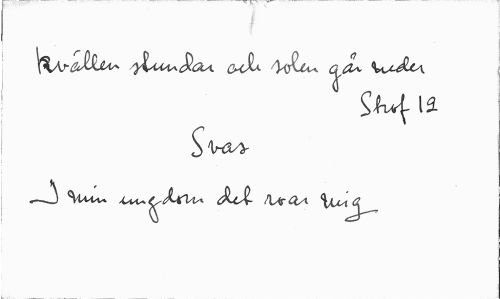 kvällen stundar och solen går neder
Strof 12
Svar
I min ungdom det roar mig